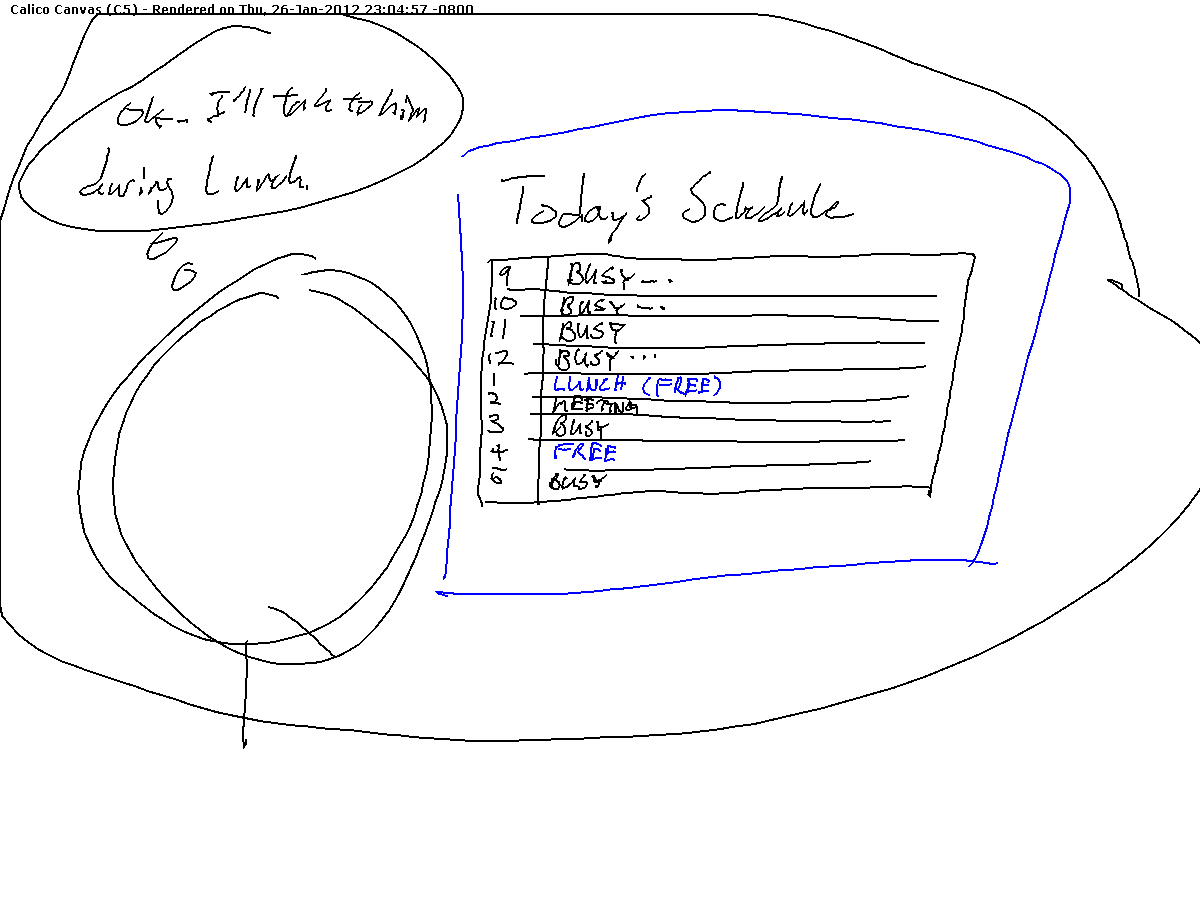 Calico Canvas (C5) - Rendered on Thu, 26-Jan-2012 23:04:57 -0800
Ok- I'll talk to him
during Lunch.
Today's Schedule
9 BUSY - - .
10 BUSY - - .
11 BUSY
12 BUSY ...
1 LUNCH (FREE)
2 MEETING
3 BUSY
4 FREE
5 BUSY